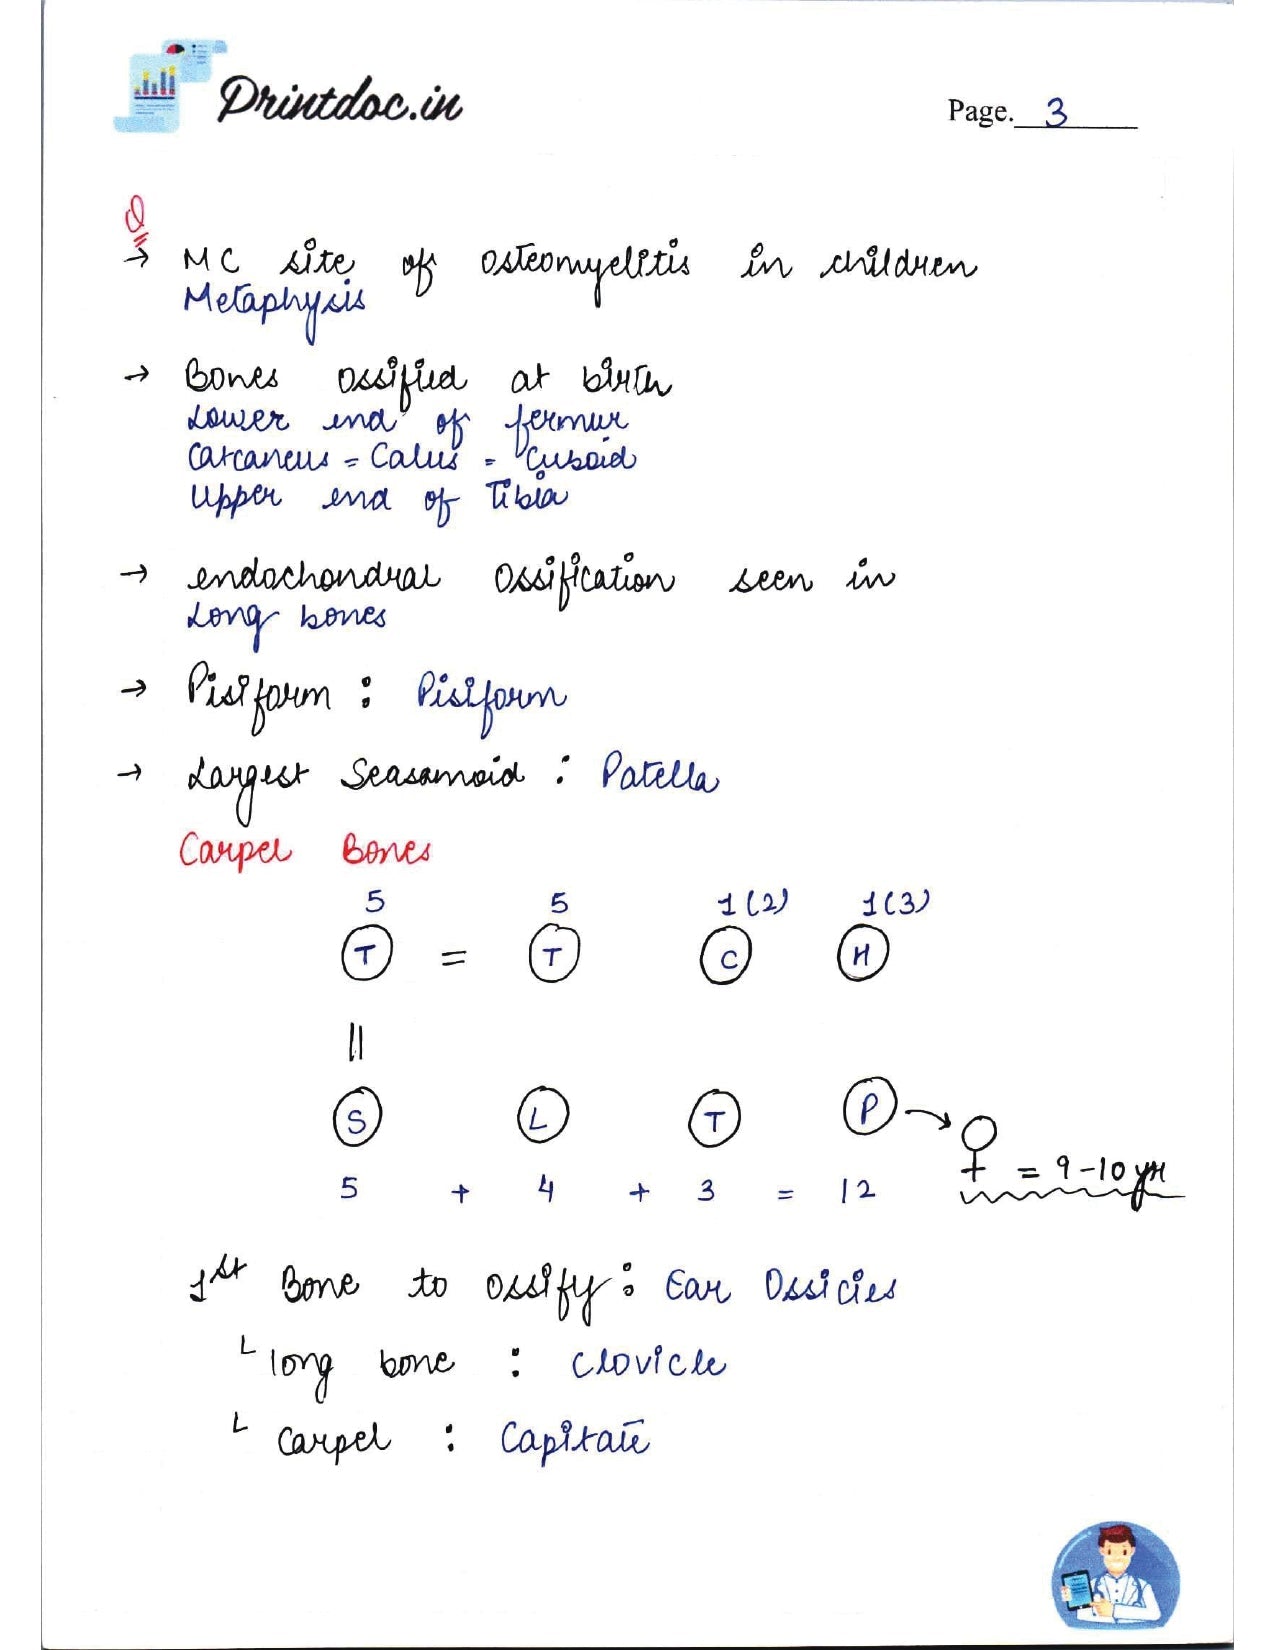 Printdoc.in
Page. 3
Q
→ MC site of Osteomyelitis in children
Metaphysis
→ Bones Ossified at birth
Lower end of fermur
Carcaneus = Calus = Cuboid
Upper end of Tibia
→ endochondral Ossification seen in
Long bones
→ Pisiform : Pisiform
→ Largest Seasamoid : Patella
Carpel Bones
5 5 1(2) 1(3)
T = T C H
||
S L T P → ♀ = 9-10 yr
5 + 4 + 3 = 12
1st Bone to Ossify : Ear Ossicies
L long bone : Clovicle
L Carpel : Capitate